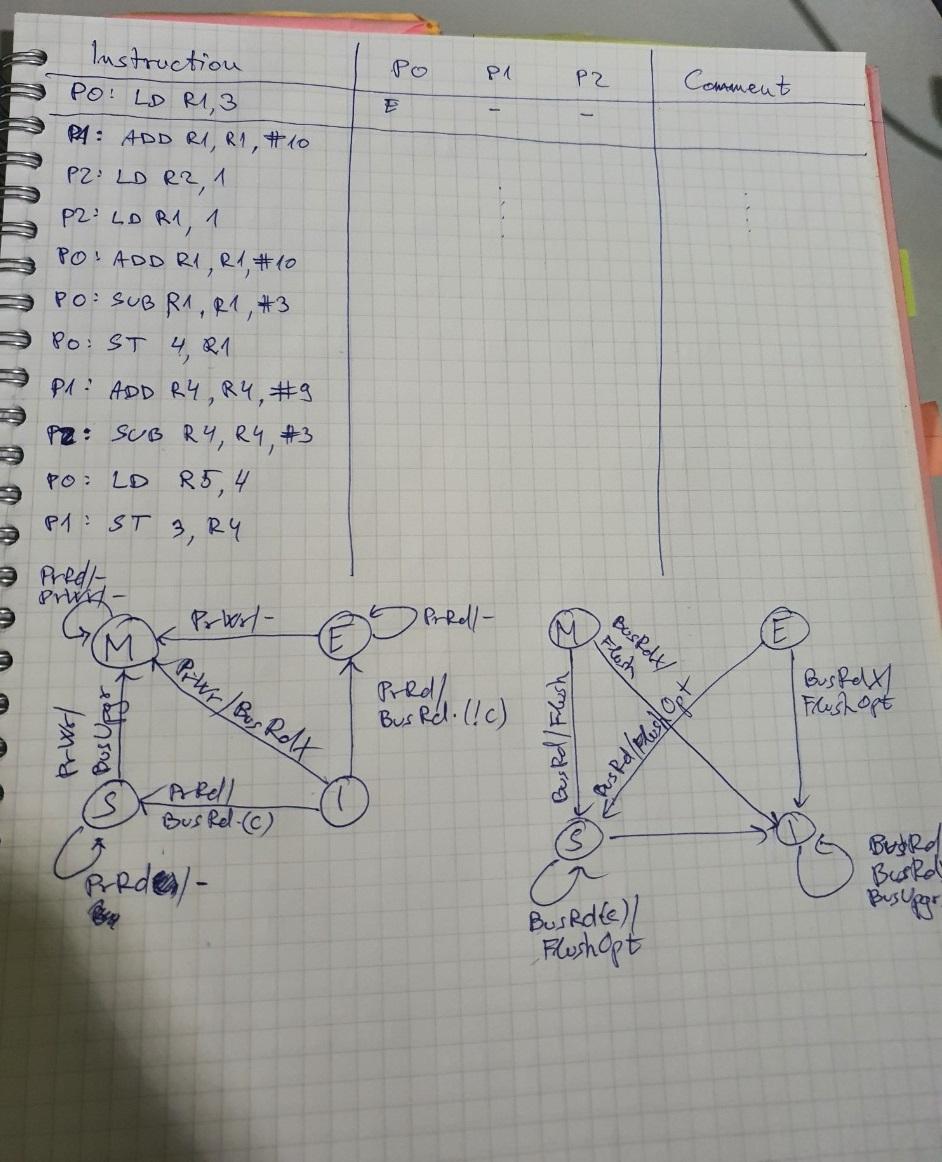 Instruction P0 P1 P2 Comment
P0: LD R1, 3 E - -
P1: ADD R1, R1, #10
P2: LD R2, 1
P2: LD R1, 1
P0: ADD R1, R1, #10
P0: SUB R1, R1, #3
P0: ST 4, R1
P1: ADD R4, R4, #9
P2: SUB R4, R4, #3
P0: LD R5, 4
P1: ST 3, R4
PrRd/-
PrWr/-
M
PrWr/-
E
PrRd/-
PrWr/BusRdX
PrRd/
BusRd.(!C)
PrWr/
BusUpgr
S
PrRd/
BusRd.(C)
I
PrRd/-
M
BusRdX/
Flush
E
BusRd/Flush
BusRd/FlushOpt
BusRdX/
FlushOpt
S
I
BusRd/
BusRd
BusUpgr
BusRd(c)/
FlushOpt